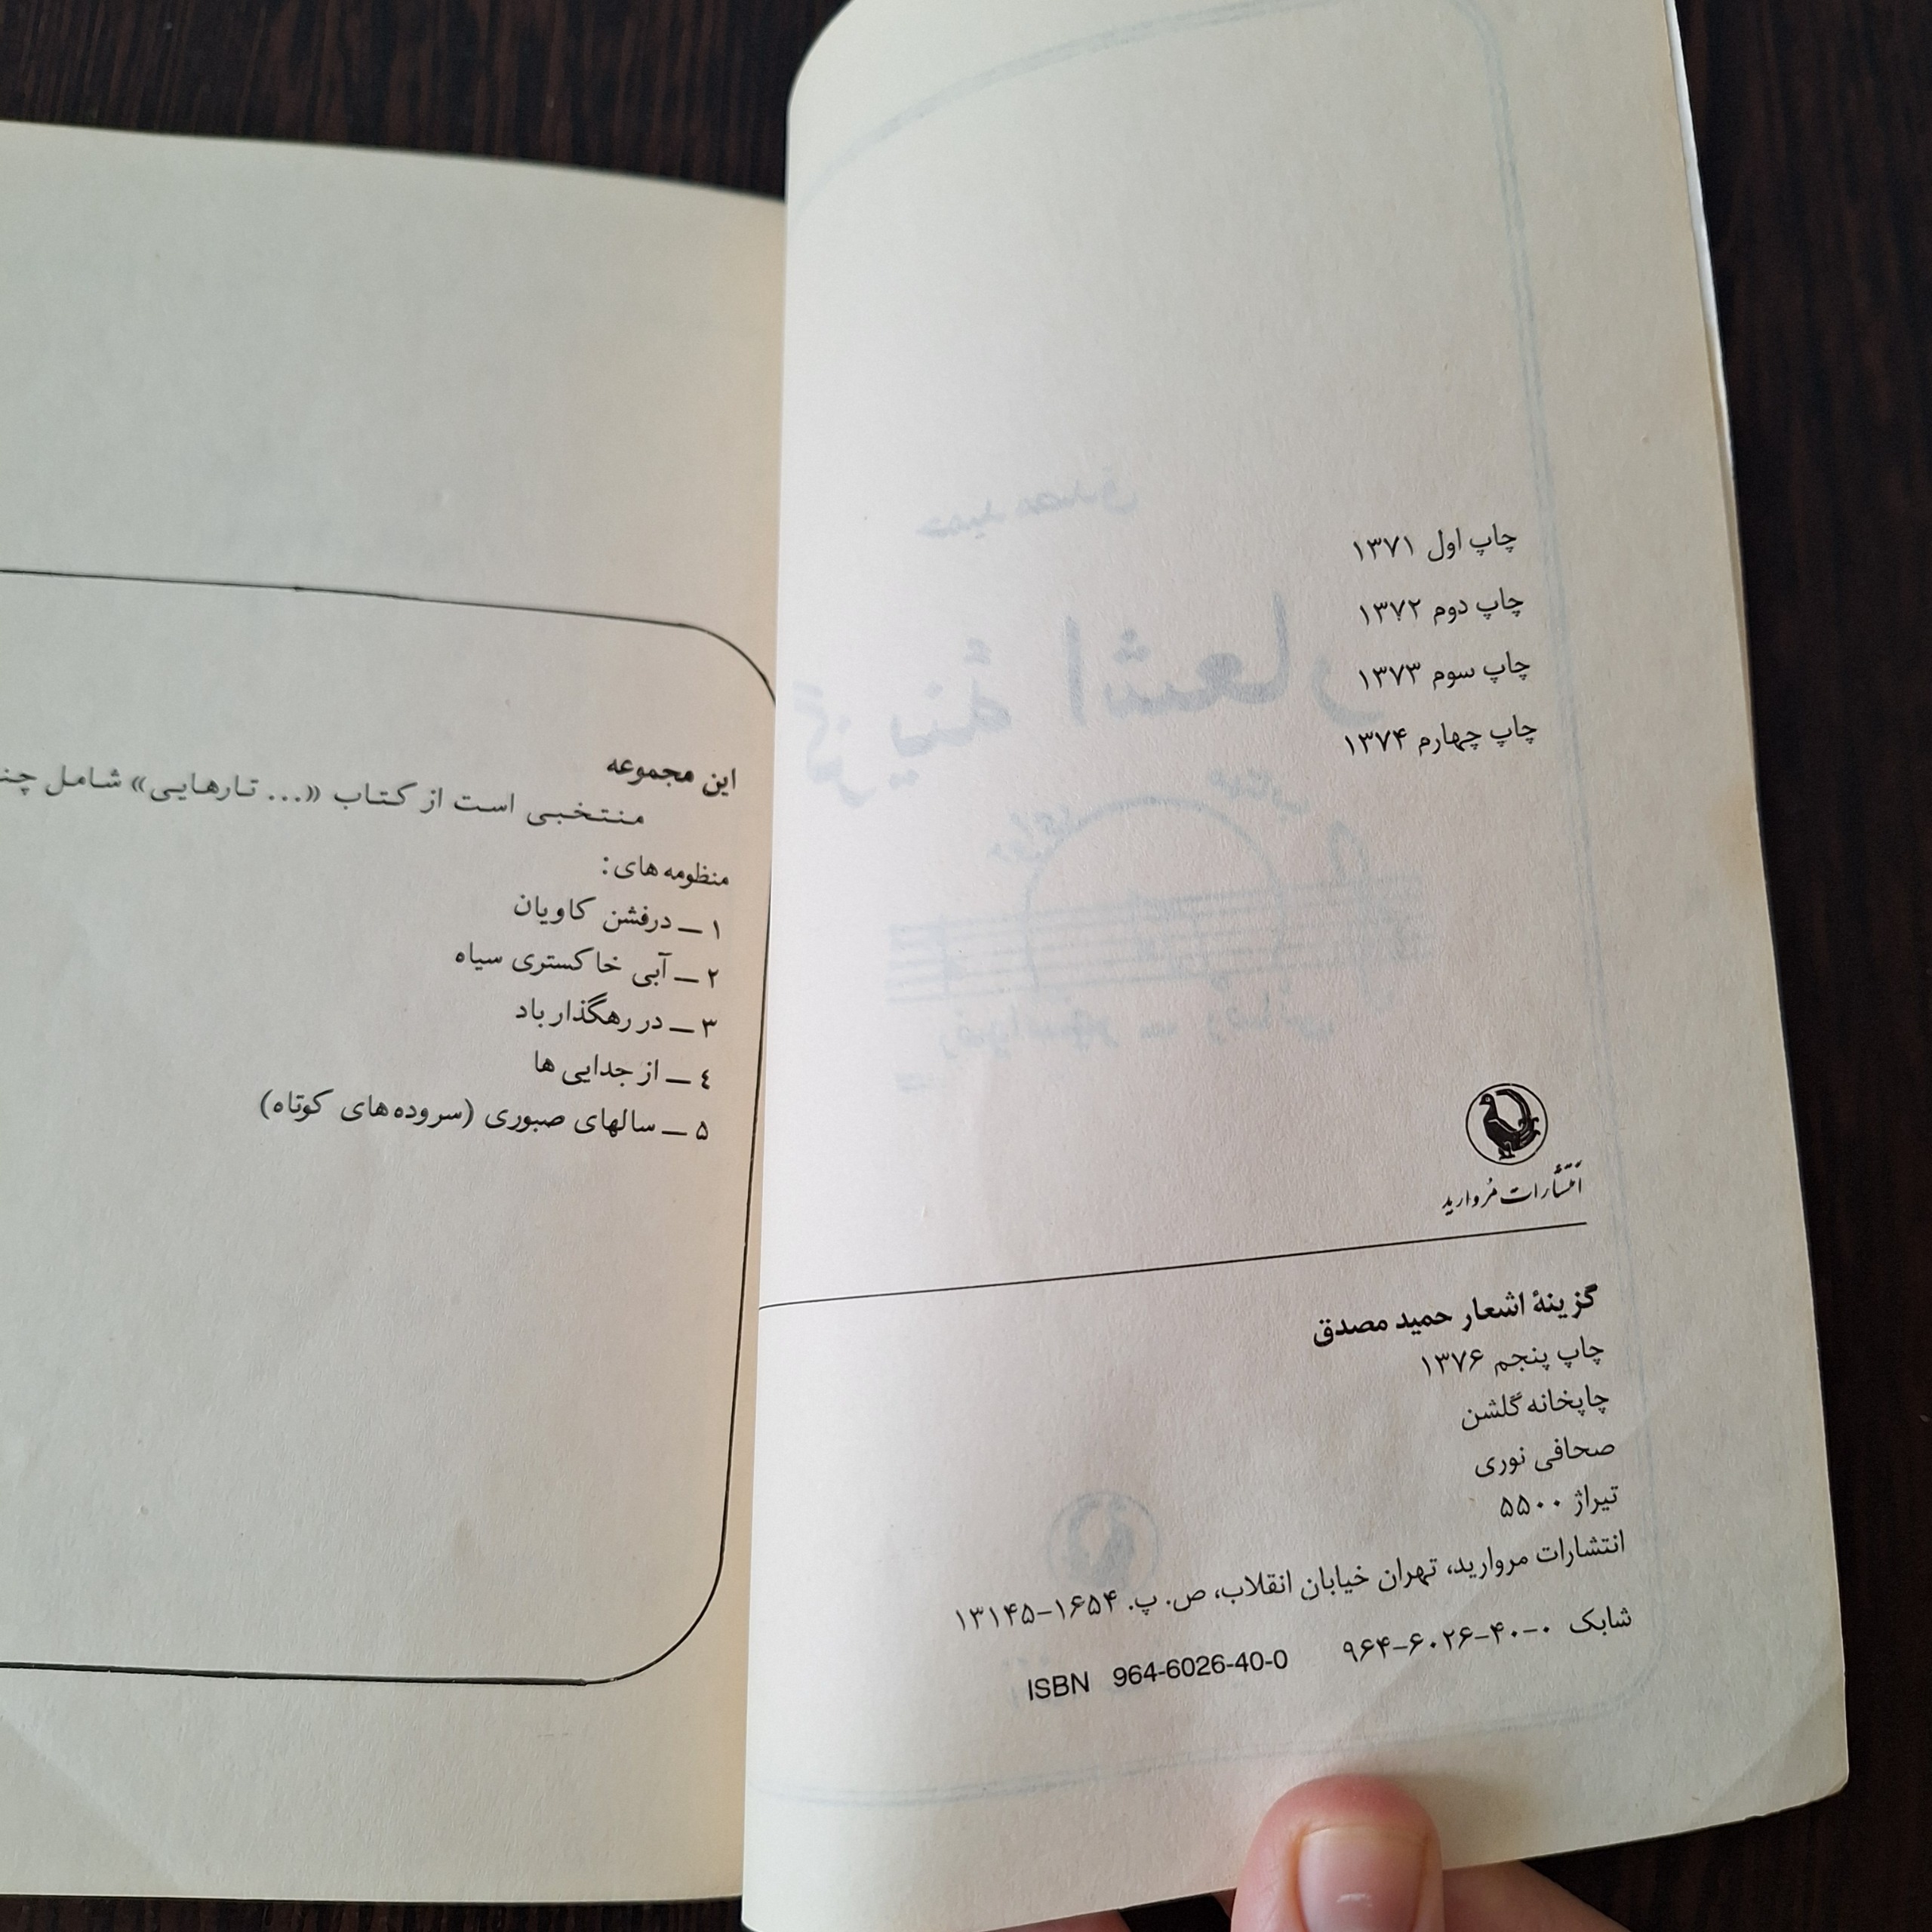 چاپ اول ۱۳۷۱
چاپ دوم ۱۳۷۲
چاپ سوم ۱۳۷۳
چاپ چهارم ۱۳۷۴
انتشارات مروارید
گزینهٔ اشعار حمید مصدق
چاپ پنجم ۱۳۷۶
چاپخانه گلشن
صحافی نوری
تیراژ ۵۵۰۰
انتشارات مروارید، تهران خیابان انقلاب، ص. پ. ۱۶۵۴–۱۳۱۴۵
شابک ۰-۴۰-۶۰۲۶-۹۶۴ ISBN 964-6026-40-0
این مجموعه
منتخبی است از کتاب «... تارهایی» شامل
منظومه های:
۱ ــ درفش کاویان
۲ ــ آبی خاکستری سیاه
۳ ــ در رهگذار باد
٤ ــ از جدایی ها
۵ ــ سالهای صبوری (سروده های کوتاه)